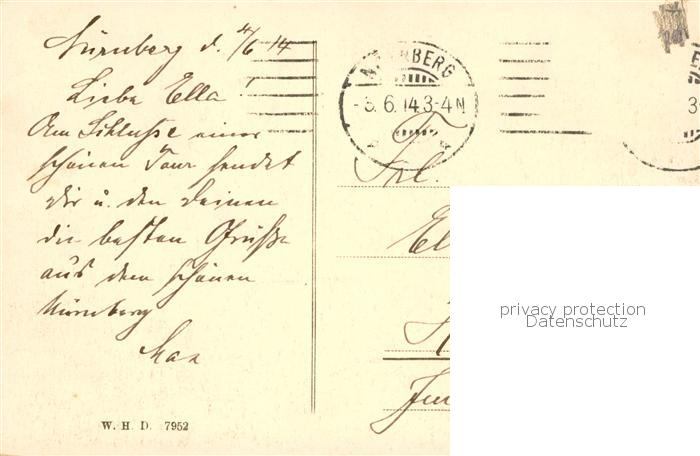 Nürnberg d. 4/6 14
Liebe Ella!
Am Schluße einer
schönen Tour sendet
Dir u. den Deinen
die besten Grüße
aus dem schönen
Nürnberg
Max
W. H. D. 7952
NÜRNBERG
- 5.6.14.3-4N
Frl.
privacy protection
Datenschutz